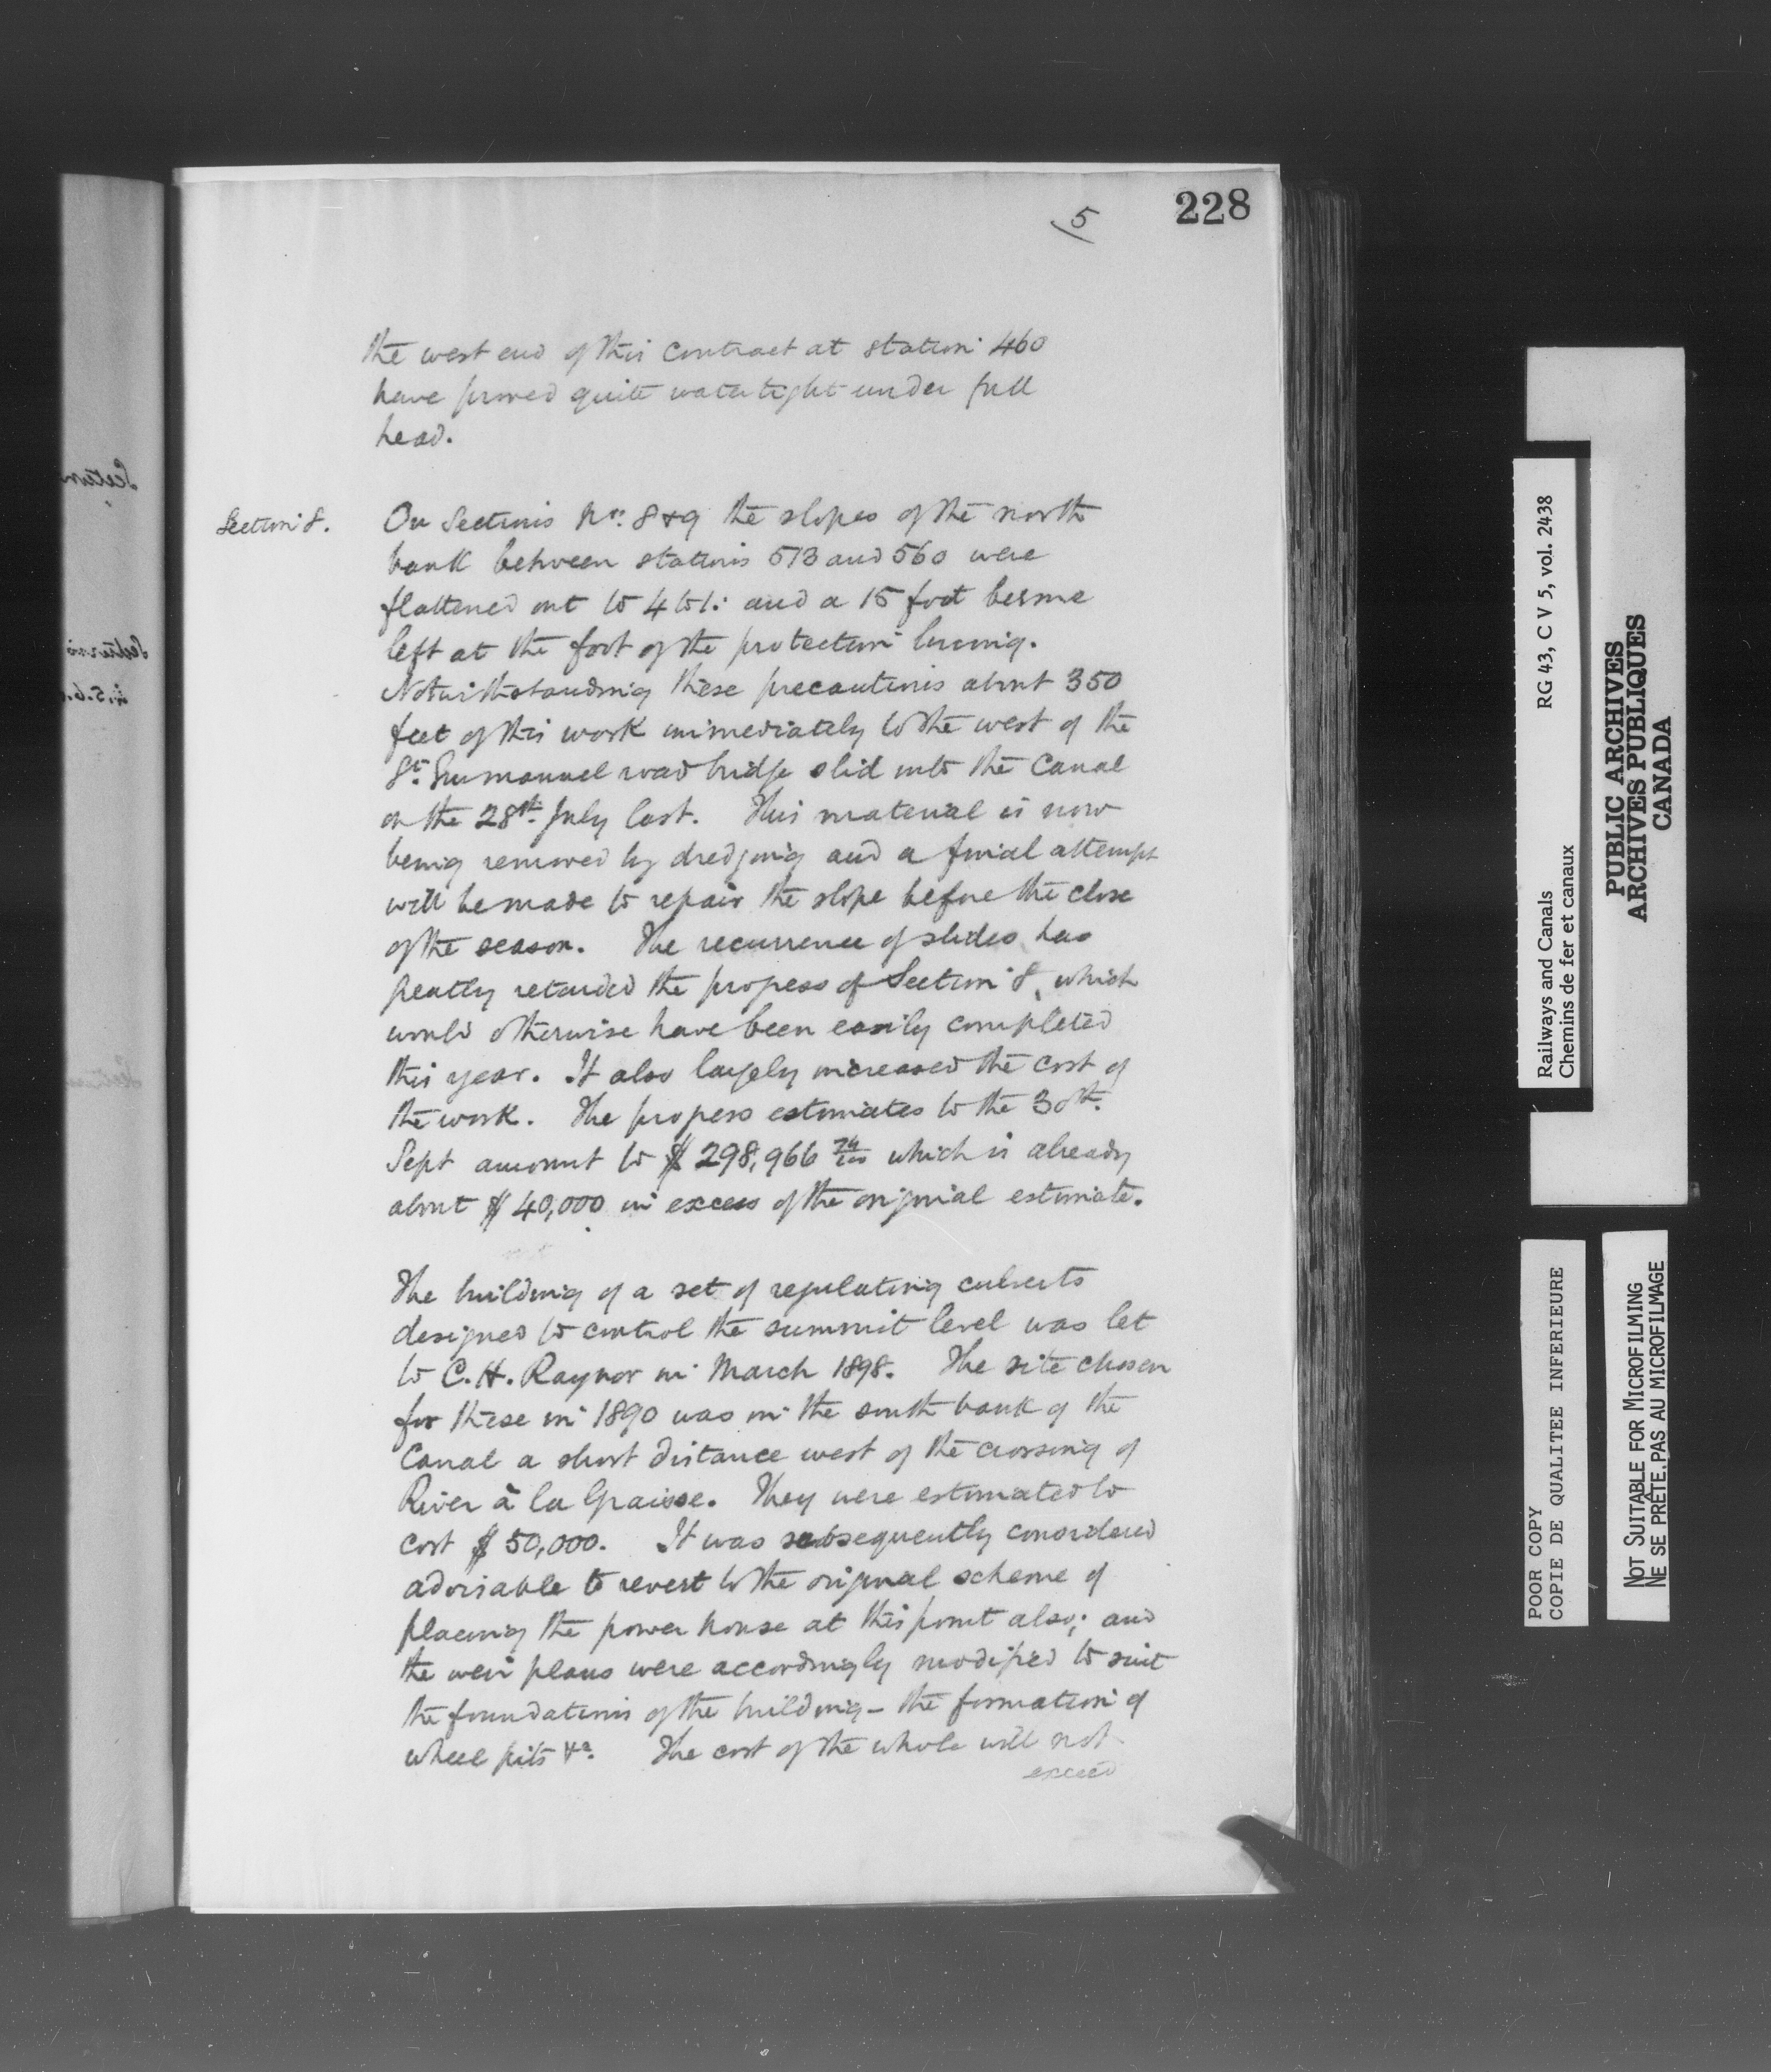 228
5
the west end of this contract at station 460
have proved quite watertight under full
head.
Section 8.
On Sections Nos. 8 & 9 the slopes of the north
bank between stations 513 and 560 were
flattened out to 4 to 1: and a 15 foot berme
left at the foot of the protection lining.
Notwithstanding these precautions about 350
feet of this work immediately to the west of the
St. Emmanuel road bridge slid into the Canal
on the 28th July last. This material is now
being removed by dredging and a final attempt
will be made to repair the slope before the close
of the season. The recurrence of slides has
greatly retarded the progress of Section 8, which
would otherwise have been easily completed
this year. It also largely increased the cost of
the work. The progress estimates to the 30th.
Sept amount to $ 298,966 74/100 which is already
about $ 40,000 in excess of the original estimate.
The building of a set of regulating culverts
designed to control the summit level was let
to C. H. Raynor in March 1898. The site chosen
for these in 1890 was in the south bank of the
Canal a short distance west of the crossing of
River à la Graisse. They were estimated to
cost $ 50,000. It was subsequently considered
advisable to revert to the original scheme of
placing the power house at this point also; and
the weir plans were accordingly modified to suit
the foundations of the building – the formation of
wheel pits &c. The cost of the whole will not
exceed
Section
Sections
4.5.6.
Railways and Canals RG 43, C V 5, vol. 2438
Chemins de fer et canaux
PUBLIC ARCHIVES
ARCHIVES PUBLIQUES
CANADA
POOR COPY
COPIE DE QUALITEE INFERIEURE
NOT SUITABLE FOR MICROFILMING
NE SE PRÊTE PAS AU MICROFILMAGE